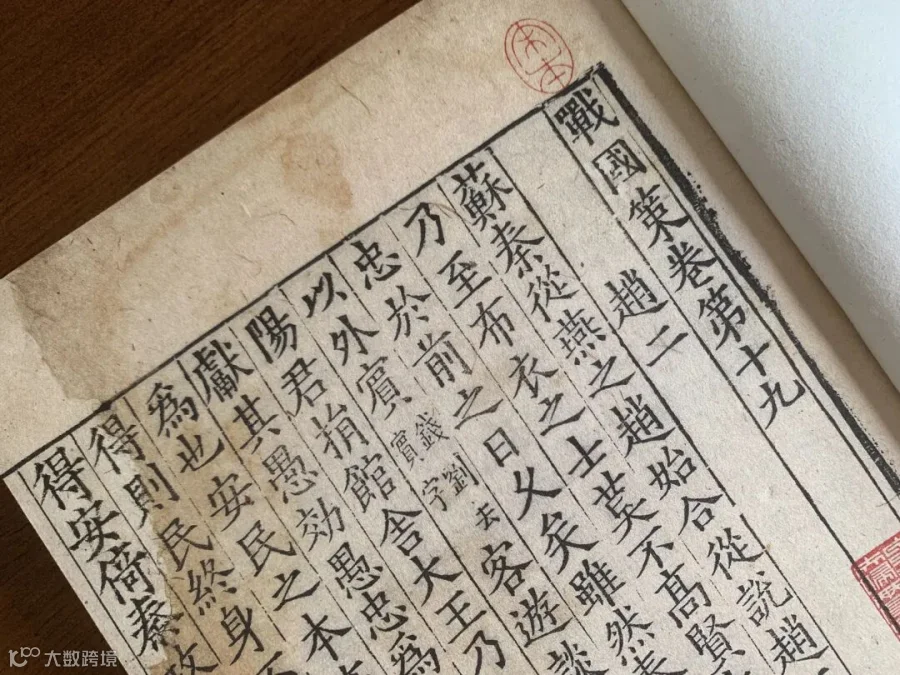 戰國策卷第十九
趙二
蘇秦從燕之趙始合從說趙
乃至布衣之士莫不高賢
忠於前之日久矣雖然
以外賓錢劉去賓字客遊談
陽君捐館舍大王乃
獻其愚効愚忠為
為也安民之本
得則民終身
得安倚秦攻
大数跨境